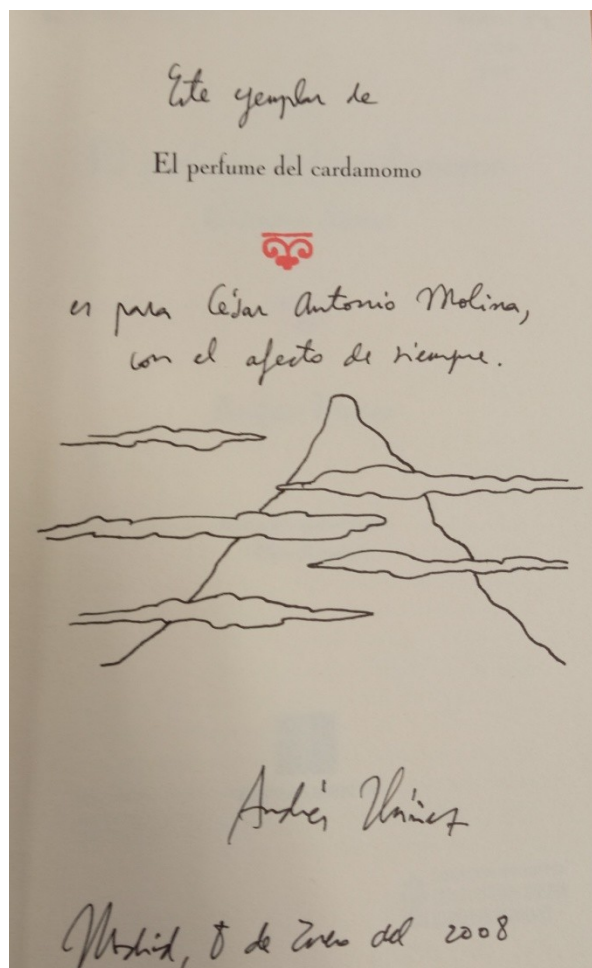 Este ejemplar de
El perfume del cardamomo
es para César Antonio Molina,
con el afecto de siempre.
Andrés Ibáñez
Madrid, 8 de Enero del 2008